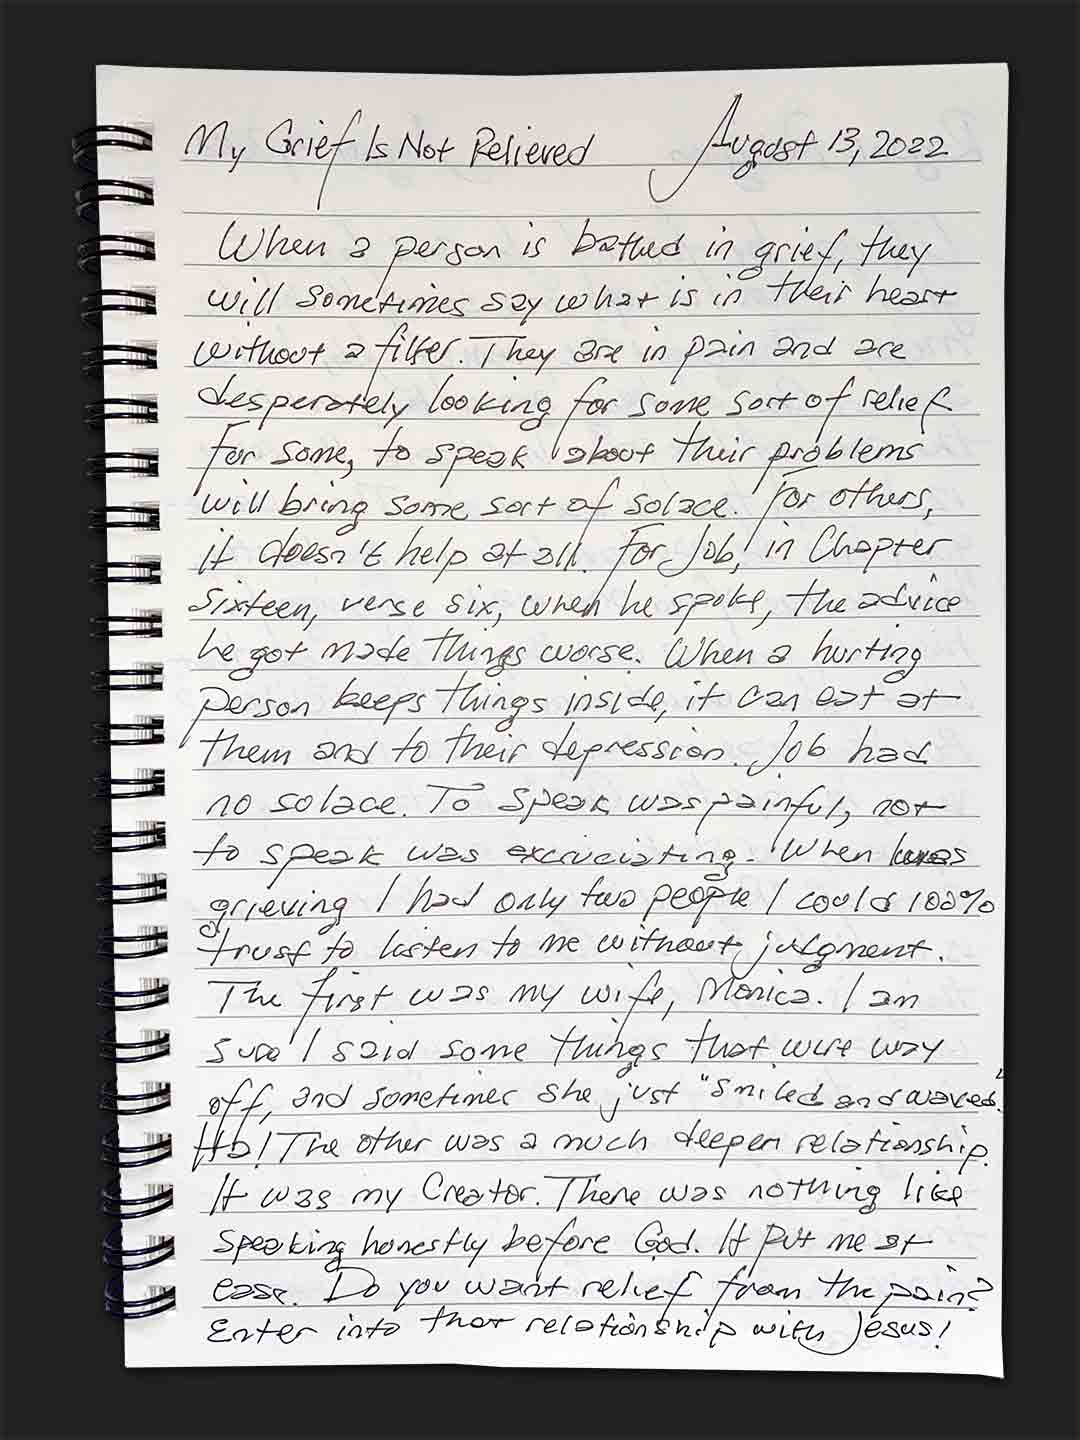 My Grief Is Not Relieved August 13, 2022
When a person is bathed in grief, they
will sometimes say what is in their heart
without a filter. They are in pain and are
desperately looking for some sort of relief
For some, to speak about their problems
will bring some sort of solace. For others,
it doesn't help at all. For Job, in Chapter
Sixteen, verse six, when he spoke, the advice
he got made things worse. When a hurting
person keeps things inside, it can eat at
them and to their depression. Job had
no solace. To speak was painful, not
to speak was excruciating. When
grieving I had only two people I could 100%
trust to listen to me without judgment.
The first was my wife, Monica. I am
sure I said some things that were way
off, and sometimes she just "smiled and waved."
Ha! The other was a much deeper relationship.
It was my Creator. There was nothing like
speaking honestly before God. It put me at
ease. Do you want relief from the pain?
Enter into that relationship with Jesus!